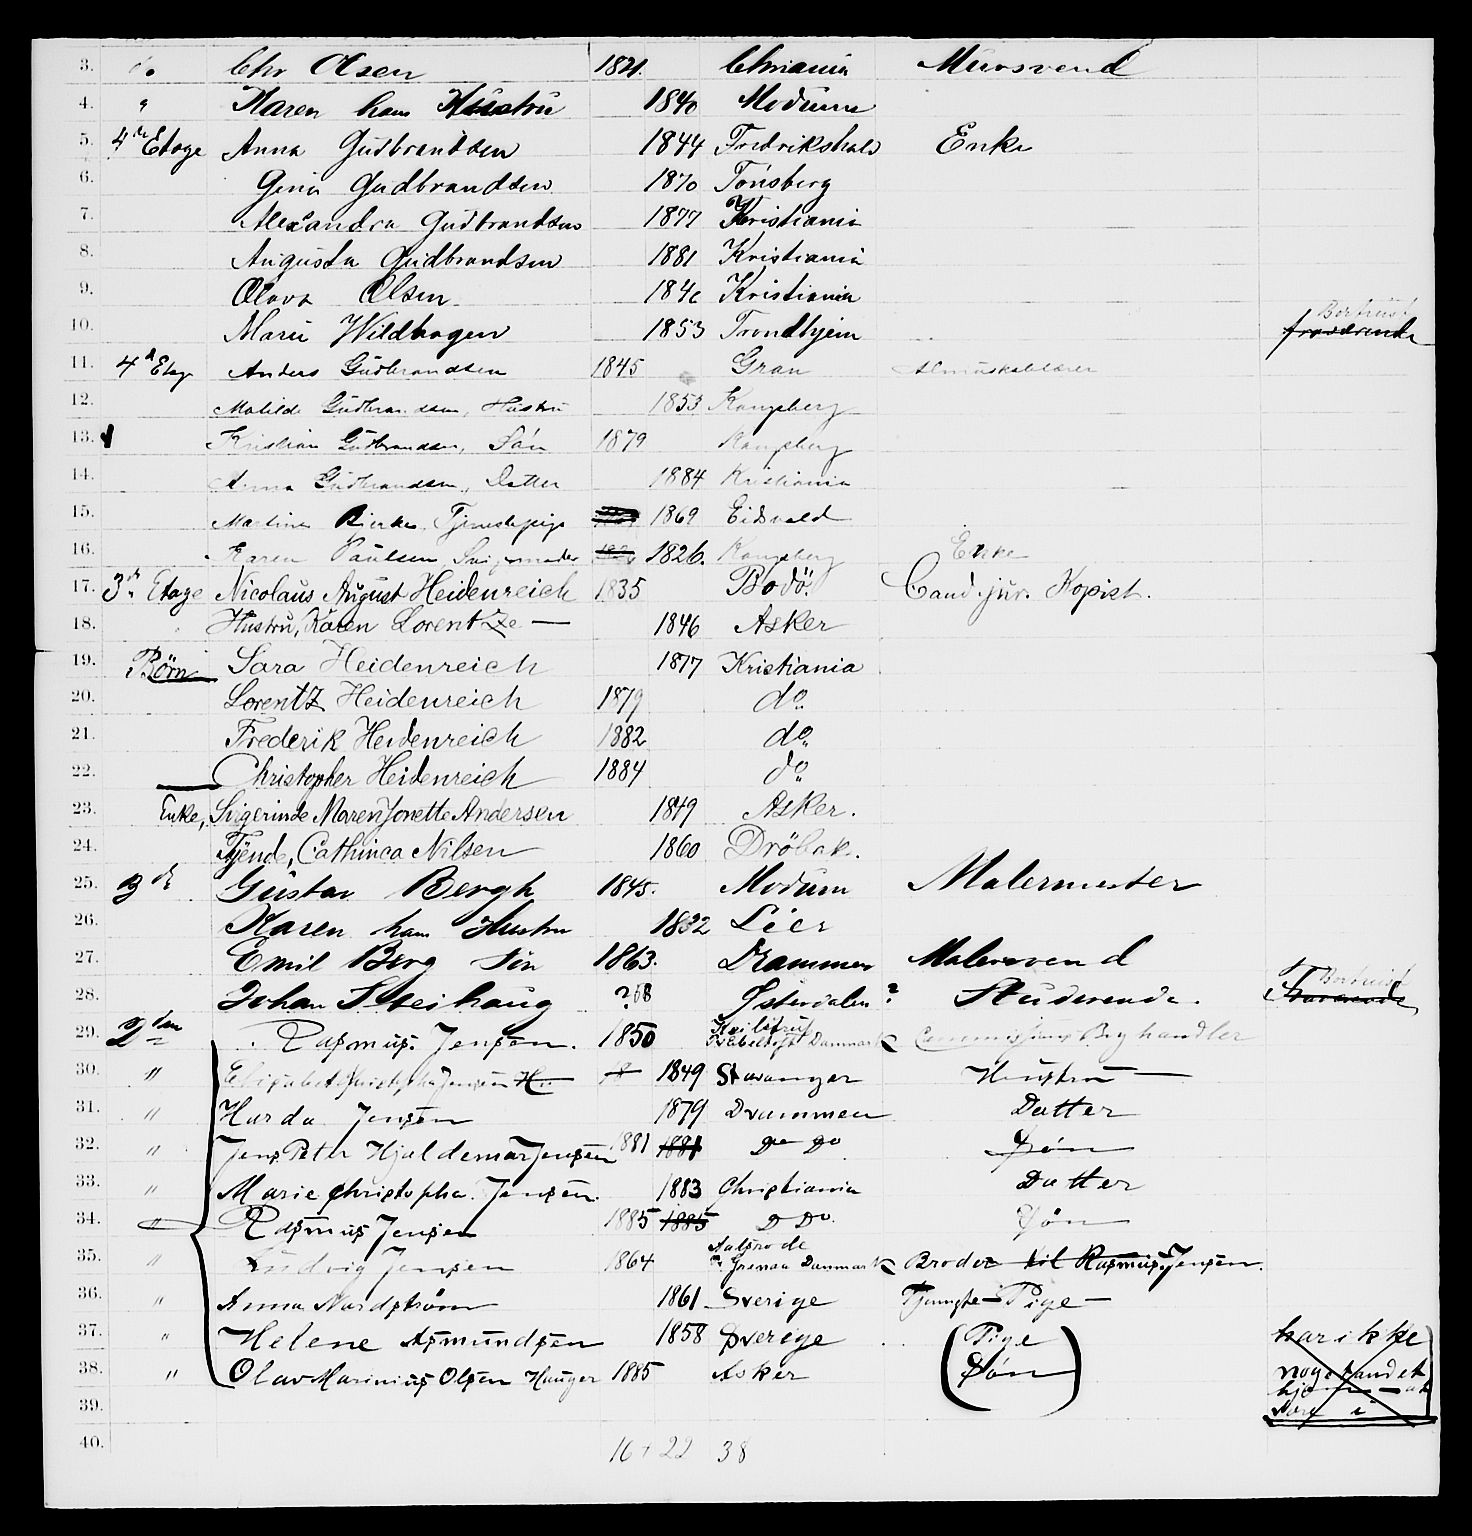 3. do Chr Olsen 1821. Chriania Murssvend
4. " Karen hans Hustru 1840 Modum
5. 4de Etage Anna Gudbrandsen 1844 Fredrikshald Enke
6. Gina Gudbrandsen 1870 Tönsberg
7. Alexandra Gudbrandsen 1877 Kristiania
8. Augusta Gudbrandsen 1881 Kristiania
9. Olava Olsen 184 Kristiania
Bortreist
10. Marie Wildhagen 1853 Trondhjem fraværende
11. 4d Etag Anders Gudbrandsen 1845 Gran
12. Matilde Gudbrandsen, Hustru 1853 Kongsberg
13. Kristian Gudbrandsen, Sön 1879 Kongsberg
14. Anna Gudbrandsen, Datter 1884 Kristiania
15. Martine Bjerke, Tjenestepige 1869 Eidsvold
16. Karen Paulsen, Svigermoder 1826. Kongsberg Enke
17. 3de Etage Nicolaus August Heidenreich 1835 Bodö. Cand. jur. Kopist.
18. Hustru, Karen Lorentze — 1846 Asker
19. Börn Sara Heidenreich 1877 Kristiania
20. Lorentz Heidenreich 1879 do.
21. Frederik Heidenreich 1882 do.
22. Christopher Heidenreich 1884 do
23. Enke, Svigerinde Maren Jonette Andersen 1849 Asker.
24. Tjende, Cathinca Nilsen 1860 Dröbak.
25. 3de Gustav Bergh 1845. Modum Malermester
26. Karen hans Hustru 1832 Lier
27. Emil Berg Sön 1863. Drammen Malersvend
Bortreist
28. Johan Streihaug ?58 Østerdalen? Studerende. Fraværende
29. 2den Rasmus Jensen. 1850 Ebeltoft Danmark Commissions Byhandler
30. " Elisabet Jensen 1849 Stavanger Hustru —
31. " Harda Jensen 1879 Drammen Datter
32. " Jens Petter Hjaldemar Jensen 1881 1881 Do Do Søn
33. " Marie Christopha. Jensen. 1883 Christiania Datter
34. " Rasmus Jensen 1885 1885 D Do. Søn
35. " Ludvig Jensen 1864 Grenaa Danmark Broder til Rasmus Jensen.
36. " Anna Nordstrøm 1861 Sverige Tjeneste-Pige —
37. " Helene Asmundsen 1858 Sverige (Pige har ikke
38. " Olav Marinius Olsen Hauger 1885 Asker Søn) noget andet
39.
40. 16 + 22 38